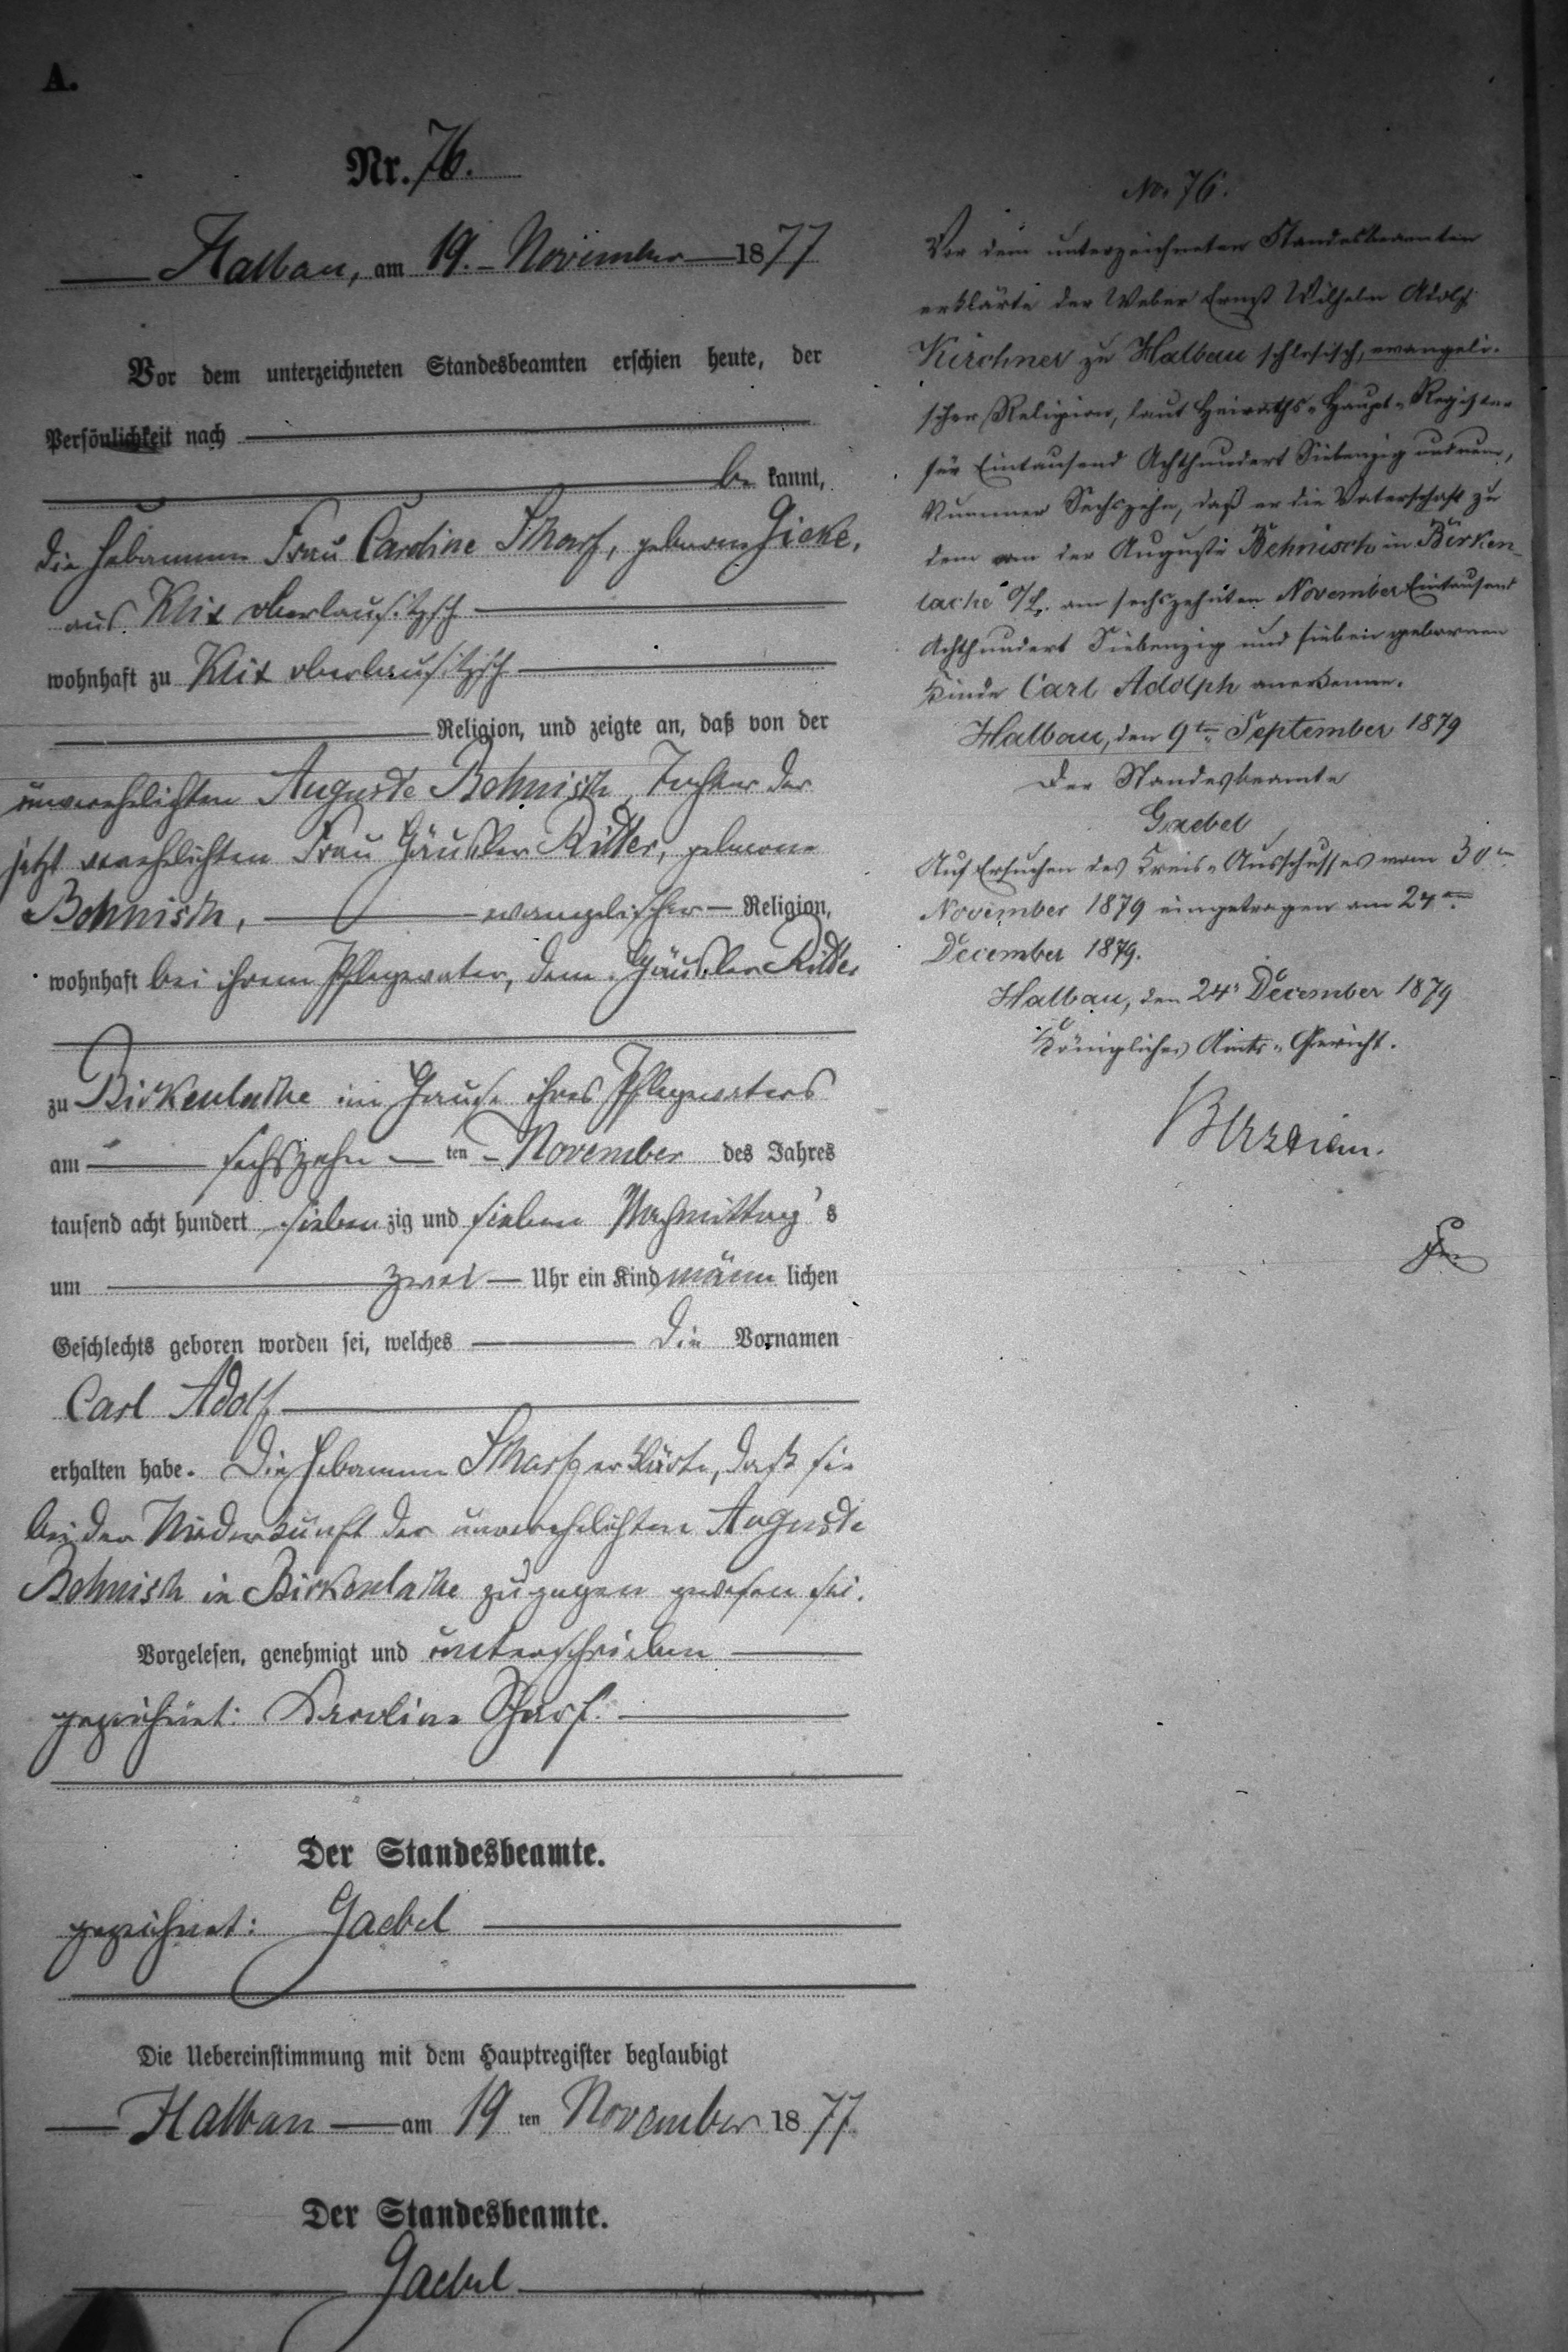 A.
Nr. 76.
Halbau, am 19. November 1877
Vor dem unterzeichneten Standesbeamten erschien heute, der
Persönlichkeit nach
be kannt,
die Hebamme Frau Caroline Scharf, geborene Gicke,
aus Klix oberlausitzsch
wohnhaft zu Klix oberlausitzsch
Religion, und zeigte an, daß von der
unverehelichten Auguste Bohnisch, Tochter der
jetzt verehelichten Frau Häusler Ritter, geborene
Bohnisch, evangelischer Religion,
wohnhaft bei ihrem Pflegevater, dem Häusler Ritter
zu Birkenlache im Hause ihres Pflegevaters
am sechszehn ten November des Jahres
tausend acht hundert sieben zig und sieben Nachmittag's
um zwei Uhr ein Kind männ lichen
Geschlechts geboren worden sei, welches die Vornamen
Carl Adolf
erhalten habe. Die Hebamme Scharf erklärte, daß sie
bei der Niederkunft der unverehelichten Auguste
Bohnisch in Birkenlache zugegen gewesen sei.
Vorgelesen, genehmigt und unterschrieben
gezeichnet: Karoline Scharf.
Der Standesbeamte.
gezeichnet: Gaebel
Die Uebereinstimmung mit dem Hauptregister beglaubigt
Halbau am 19 ten November 1877.
Der Standesbeamte.
Gaebel
No. 76.
Vor dem unterzeichneten Standesbeamten
erklärte der Weber Ernst Wilhelm Adolf
Kirchner zu Halbau schlesisch, evangeli-
scher Religion, laut Heiraths-Haupt-Register
für Eintausend Achthundert Siebenzig und neun,
Nummer Sechszehn, daß er die Vaterschaft zu
dem von der Auguste Behnisch in Birken-
lache O/L. am sechszehnten November Eintausend
Achthundert Siebenzig und sieben geborenen
Kinde Carl Adolph anerkenne.
Halbau, den 9ten September 1879
Der Standesbeamte
Gaebel
Auf Ersuchen des Kreis-Ausschusses vom 30ten
November 1879 eingetragen am 24ten
December 1879.
Halbau, den 24t December 1879
Königliches Amts-Gericht.